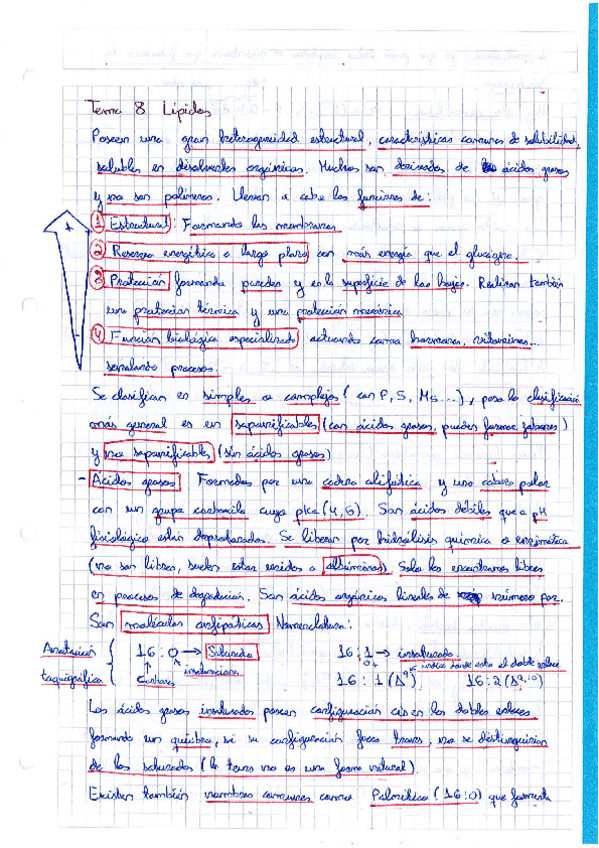 Tema 8 Lípidos
Poseen una gran heterogeneidad estructural, características comunes de solubilidad,
solubles en disolventes orgánicos. Muchos son derivados de ácidos grasos
y no son polímeros. Llevan a cabo las funciones de:
+
1 Estructural: Formando las membranas
2 Reserva energética a largo plazo con más energía que el glucógeno.
3 Protección formando paredes y en la superficie de las hojas. Realizan también
una protección térmica y una protección mecánica
4 Función biológica especializada actuando como hormonas, vitaminas...
señalando procesos.
Se clasifican en simples o complejos (con P, S, Ms...), pero la clasificación
más general es en saponificables (con ácidos grasos, pueden formar jabones)
y no saponificables (sin ácidos grasos)
- Ácidos grasos Formados por una cadena alifática y una cabeza polar
con un grupo carboxilo cuyo pKa (4,5). Son ácidos débiles que a pH
fisiológico están desprotonados. Se liberan por hidrólisis química o enzimática
(no son libres, suelen estar unidos a albúminas). Solo los encontramos libres
en procesos de degradación. Son ácidos orgánicos lineales de número par.
Son moléculas anfipáticas Nomenclatura:
Anotación taquigráfica
16:0 → Saturado
Carbonos insaturaciones
16:1 → insaturado.
indica donde está el doble enlace
16:1 (Δ9) 16:2 (Δ9,10)
Los ácidos grasos insaturados poseen configuración cis en los dobles enlaces
formando un quiebro, si su configuración fuera trans, no se distinguirían
de los saturados (la trans no es una forma natural).
Existen también nombres comunes como Palmítico (16:0) que fomenta